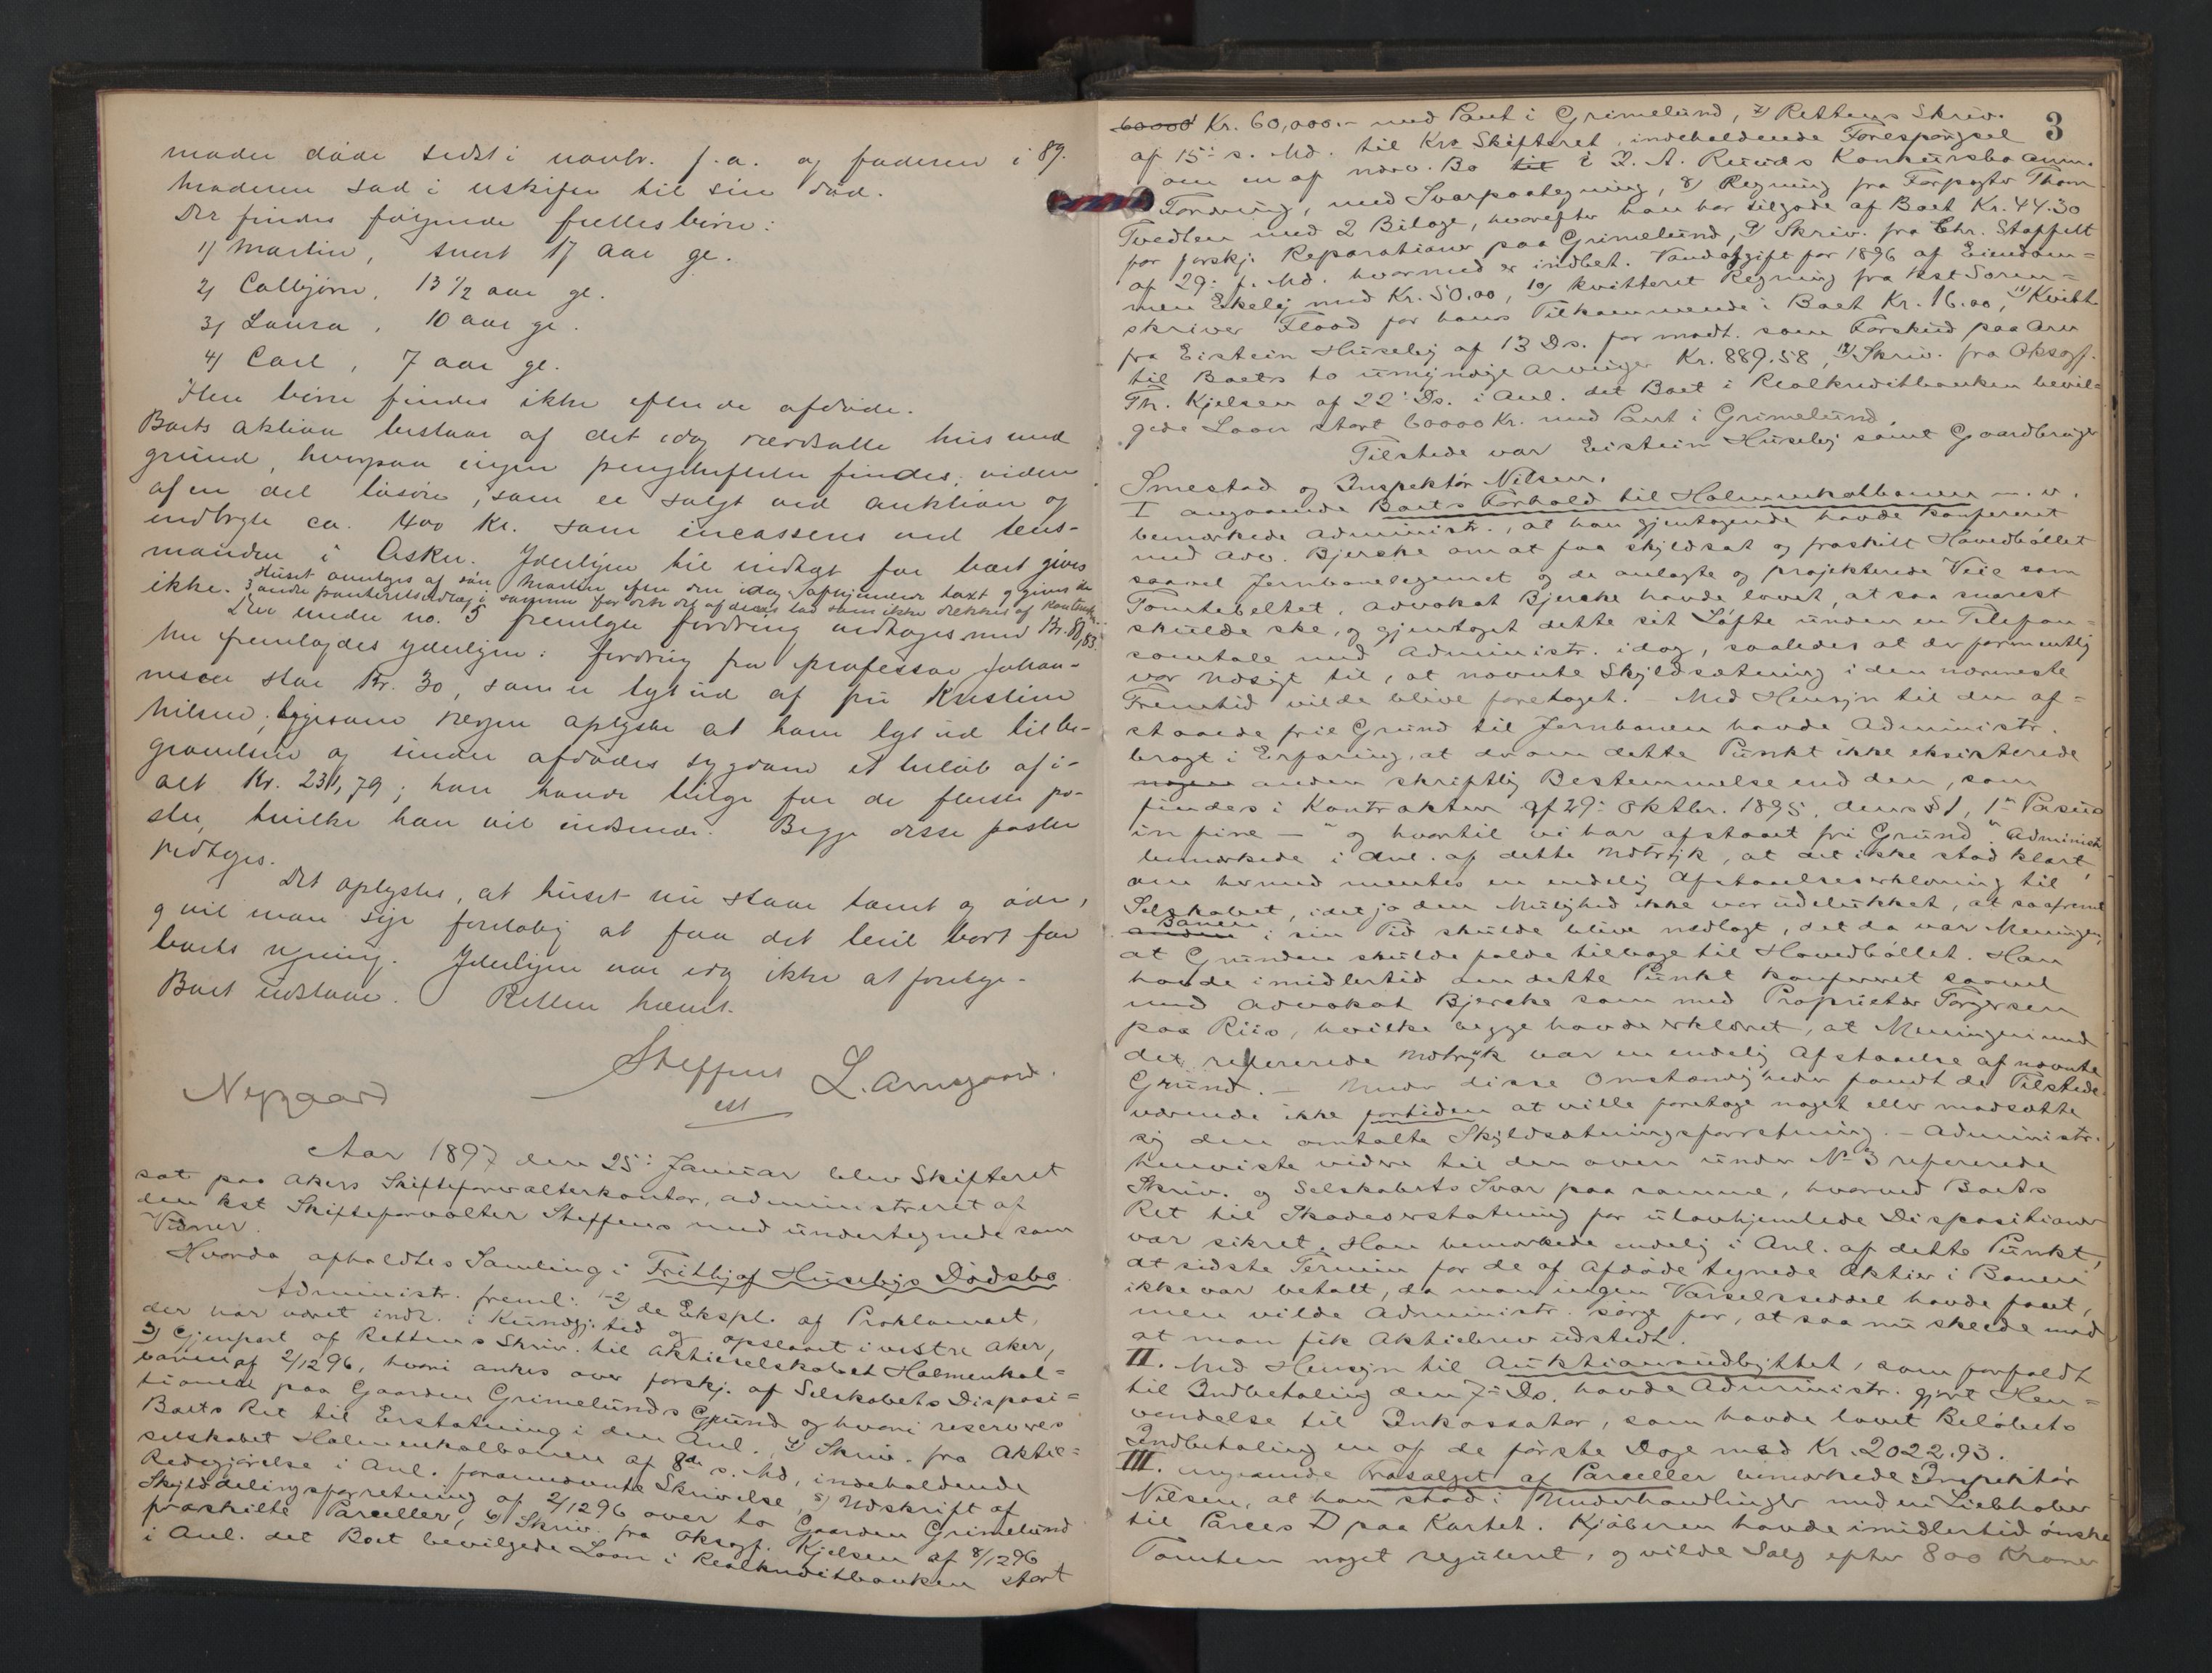 moder døde sidst i novbr. f. a. og faderen i 89.
Moderen sad i uskifte til sin død.
Der findes følgende fællesbørn:
1) Martin, snart 17 aar gl.
2) Colbjørn, 13 1/2 aar gl.
3) Laura, 10 aar gl.
4) Carl, 7 aar gl.
Flere børn findes ikke efter de afdøde.
Boets aktiva bestaar af det idag værdsatte hus med
grund, hvorpaa ingen pengeheftelser findes, viden
af en del løsøre, som er solgt ved auktion og
indbragte ca. 400 Kr. som incasseres ved lens-
manden i Asker. Yderligere til indtægt for boet gives
ikke. Huset overtages af søn Martin efter den idag afhjemlede taxt og gives de
3 andre panteretsudlæg i samme for
Den under no. 5 fremlagte fordring vedtoges med Kr. 80,83.
Nu fremlagdes yderligere: fordring fra professor Johan-
nesen stor Kr. 30, som er lagt ud af frú Kristine
Nilsen; ligesom værgen oplyste at have lagt ud til be-
gravelsen og under afdødes sygdom et beløb af i-
alt Kr. 231,79; han havde bilage for de fleste po-
ster, hvilke han vil indsende. Begge disse poster
vedtoges.
Det oplystes, at huset nu staar tomt og øde,
og vil man søge foreløbig at faa det leiet bort for
boets regning. Yderligere var idag ikke at foretage.
Boet udstaar. Retten hævet.
Steffens L. Arnegaard.
cst
Nygaard
Aar 1897 den 25: Januar blev Skifteret
sat paa Akers Skifteforvalterkontor, administreret af
den kst Skifteforvalter Steffens med undertegnede som
Vidner.
Hvorda afholdtes Samling i Frithjof Husebys Dødsbo.
Administr. freml: 1-2) de Ekspl. af Proklamaet,
der har været indr. i Kundgj.tid og opslaaet i vestre Aker,
3) Gjenpart af Rettens Skriv. til Aktieselskabet Holmenkol=
banen af 2/12 96, hvori ankes over forskj. af Selskabets Disposi=
tioner paa Gaarden Grimelunds Grund og hvori reserveres
Boets Ret til Erstatning i den Anl., 4) Skriv. fra Aktie=
selskabet Holmenkolbanen af 8de s. Md, indeholdende
Redegjørelse i Anl. forannævnte Skrivelse, 5) Udskrift af
Skylddelingsforretning af 2/12 96 over to Gaarden Grimelund
fraskilte Parceller, 6) Skriv. fra Oksagf. Kjelsen af 8/12 96
i Anl. det Boet bevilgede Laan i Realkreditbanken stort
3
60000 Kr. 60,000.- med Pant i Grimelund, 7) Rettens Skriv.
af 15: s. Md. til Kra Skifteret, indeholdende Forespørgsel
om en af nærv. Bo til i P. A. Ruuds Konkursbo anm.
Fordring, med Svarpaategning, 8) Regning fra Forpagter Thom
Tvedten med 2 Bilage, hvorefter han har tilgode af Boet Kr. 44.30
for forskj. Reparationer paa Grimelund, 9) Skriv. fra Chr. Stoppelt
af 29: f. Md. hvormed er indbet. Vandafgift for 1896 af Eiendom=
men Ekely med Kr. 50.00, 10) kvitteret Regning fra kst Soren=
skriver Flood for hans Tilkommende i Boet Kr. 16.00, 11) Kvitt.
fra Eistein Huseby af 13 Ds. for modt. som Forskud paa Arv
til Boets to umyndige Arvinger Kr. 889.58, 12) Skriv. fra Oksagf.
Th. Kjelsen af 22' Ds. i Anl. det Boet i Realkreditbanken bevil=
gede Laan stort 60000 Kr. med Pant i Grimelund.
Tilstede var Eistein Huseby samt Gaardbruger
Smestad og Inspektør Nilsen.
I angaaende Boets Forhold til Holmenkolbanen m. v.
bemærkede Administr., at han gjentagende havde konfereret
med Adv. Bjercke om at faa skyldsat og fraskilt Hovedbøllet
saavel Jernbanelegemet og de anlagte og projekterede Veie som
Tomtebeltet. Advokat Bjercke havde lovet, at saa snarest
skulde ske, og gjentaget dette sit Løfte under en Telefon=
samtale med Administr. idag, saaledes at der formentlig
var Udsigt til, at nævnte Skyldsætning i den nærmeste
Fremtid vilde blive foretaget. - Med Hensyn til den af=
staaede frie Grund til Jernbanen havde Administr.
bragt i Erfaring, at der om dette Punkt ikke eksisterede
nogen anden skriftlig Bestemmelse end den, som
findes i Kontrakten af 29: Oktbr. 1895, dens § 1, 1ste Passus
in fine - "og hvortil vi har afstaaet fri Grund". Administr.
bemærkede i Anl. af dette Udtryk, at det ikke stod klart,
om hermed mentes en endelig Afstaaelseserklæring til
Selskabet, idet jo den Mulighed ikke var udelukket, at saafremt
anden Banen i sin Tid skulde blive nedlagt, det da var Meningen,
at Grunden skulde falde tilbage til Hovedbøllet. Han
havde imidlertid om dette Punkt konfereret saavel
med Advokat Bjercke som med Proprietær Torgersen
paa Riis, hvilke begge havde erklæret, at Meningen med
det refererede Udtryk var en endelig Afstaaelse af nævnte
Grund. - Under disse Omstændigheder fandt de Tilstede-
værende ikke fortiden at ville foretage noget eller modsætte
sig den omtalte Skyldsætningsforretning. - Administr.
henviste videre til den oven under No 3 refererede
Skriv. og Selskabets Svar paa samme, hvorved Boets
Ret til Skadeserstatning for uhjemlede Dispositioner
var sikret. Han bemærkede endelig i Anl. af dette Punkt,
at sidste Termin for de af Afdøde tegnede Aktier i Banen
ikke var betalt, da man ingen Varselsseddel havde faaet,
men vilde Administr. sørge for, at saa nu skeede mod
at man fik Aktiebrev udstedt.
II. Med Hensyn til Auktionsudbyttet, som forfaldt
til Indbetaling den 7de Ds. havde Administr. gjort Hen=
vendelse til Inkassator, som havde lovet Beløbets
Indbetaling en af de første Dage med Kr. 2022.93.
III. angaaende Frasalget af Parceller bemærkede Inspektør
Nilsen, at han stod i Underhandlinger med en Liebhaber
til Parcel D paa Kartet. Kjøberen havde imidlertid ønske
Tomten noget reguleret, og vilde Salg efter 800 Kroner